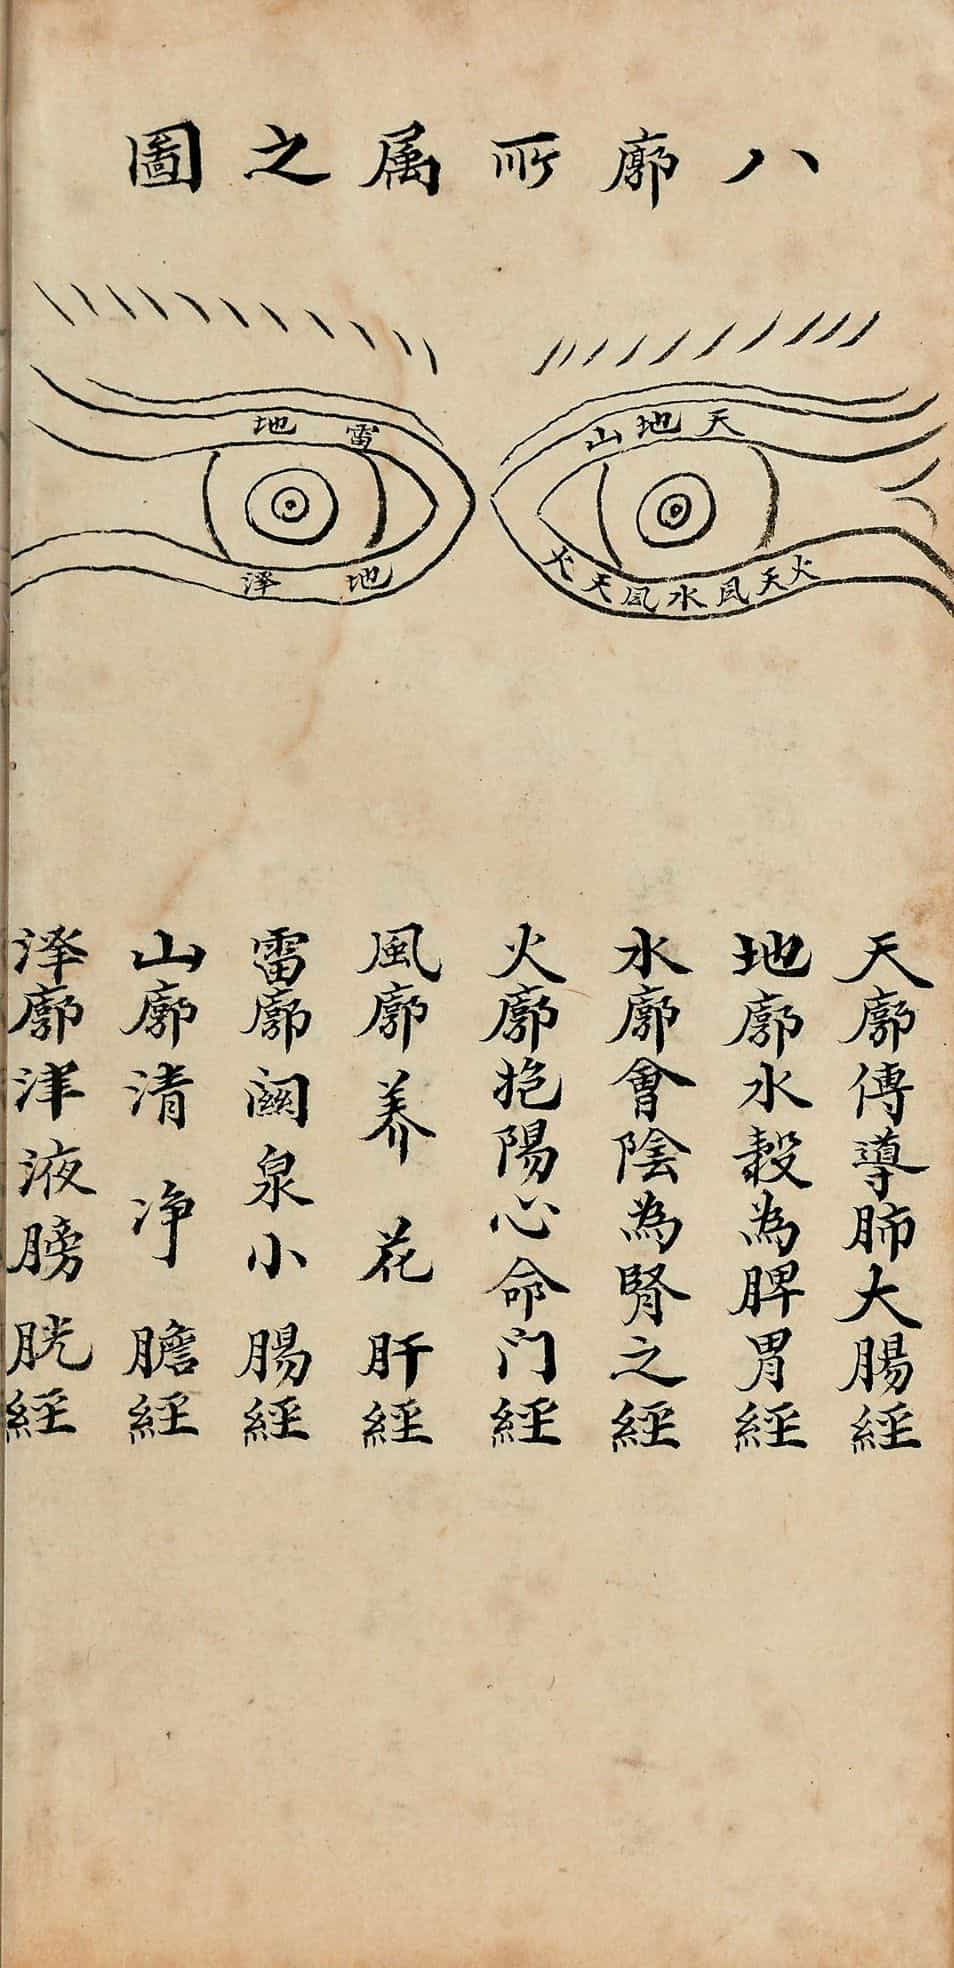 八廓所属之圖
天 地 山
火 天 風 水 風 天 火
雷 地
地 澤
天廓傳導肺大腸經
地廓水穀為脾胃經
水廓會陰為腎之經
火廓抱陽心命门經
風廓养花肝經
雷廓阙泉小腸經
山廓清净膽經
澤廓津液膀胱經